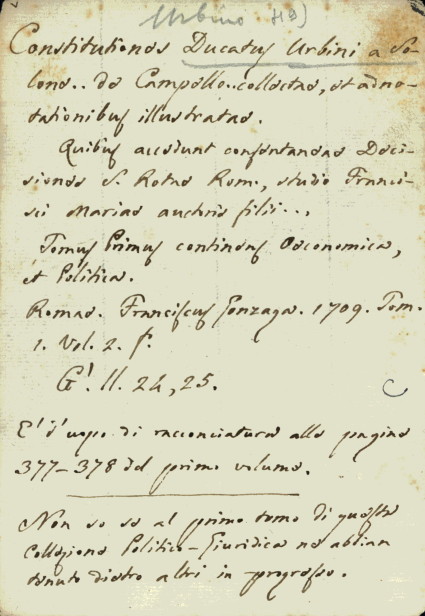 Urbino H9)
Constitutiones Ducatus Urbini a So-
lone.. de Campello.. collectae, et adno-
tationibus illustratae.
Quibus accedunt consentaneae Deci-
siones S. Rotae Rom., studio Franci-
sci Mariae auctoris filii...
Tomus Primus continens Oeconomica,
et Politica.
Romae. Franciscus Gonzaga. 1709. Tom.
1. Vol. 2. f.
G'. II. 24, 25.
E' d'uopo di racconciatura alle pagine
377–378 del primo volume.
Non so se al primo tomo di questa
Collezione Politico-Giuridica ne abbian
tenuto dietro altri in progresso.